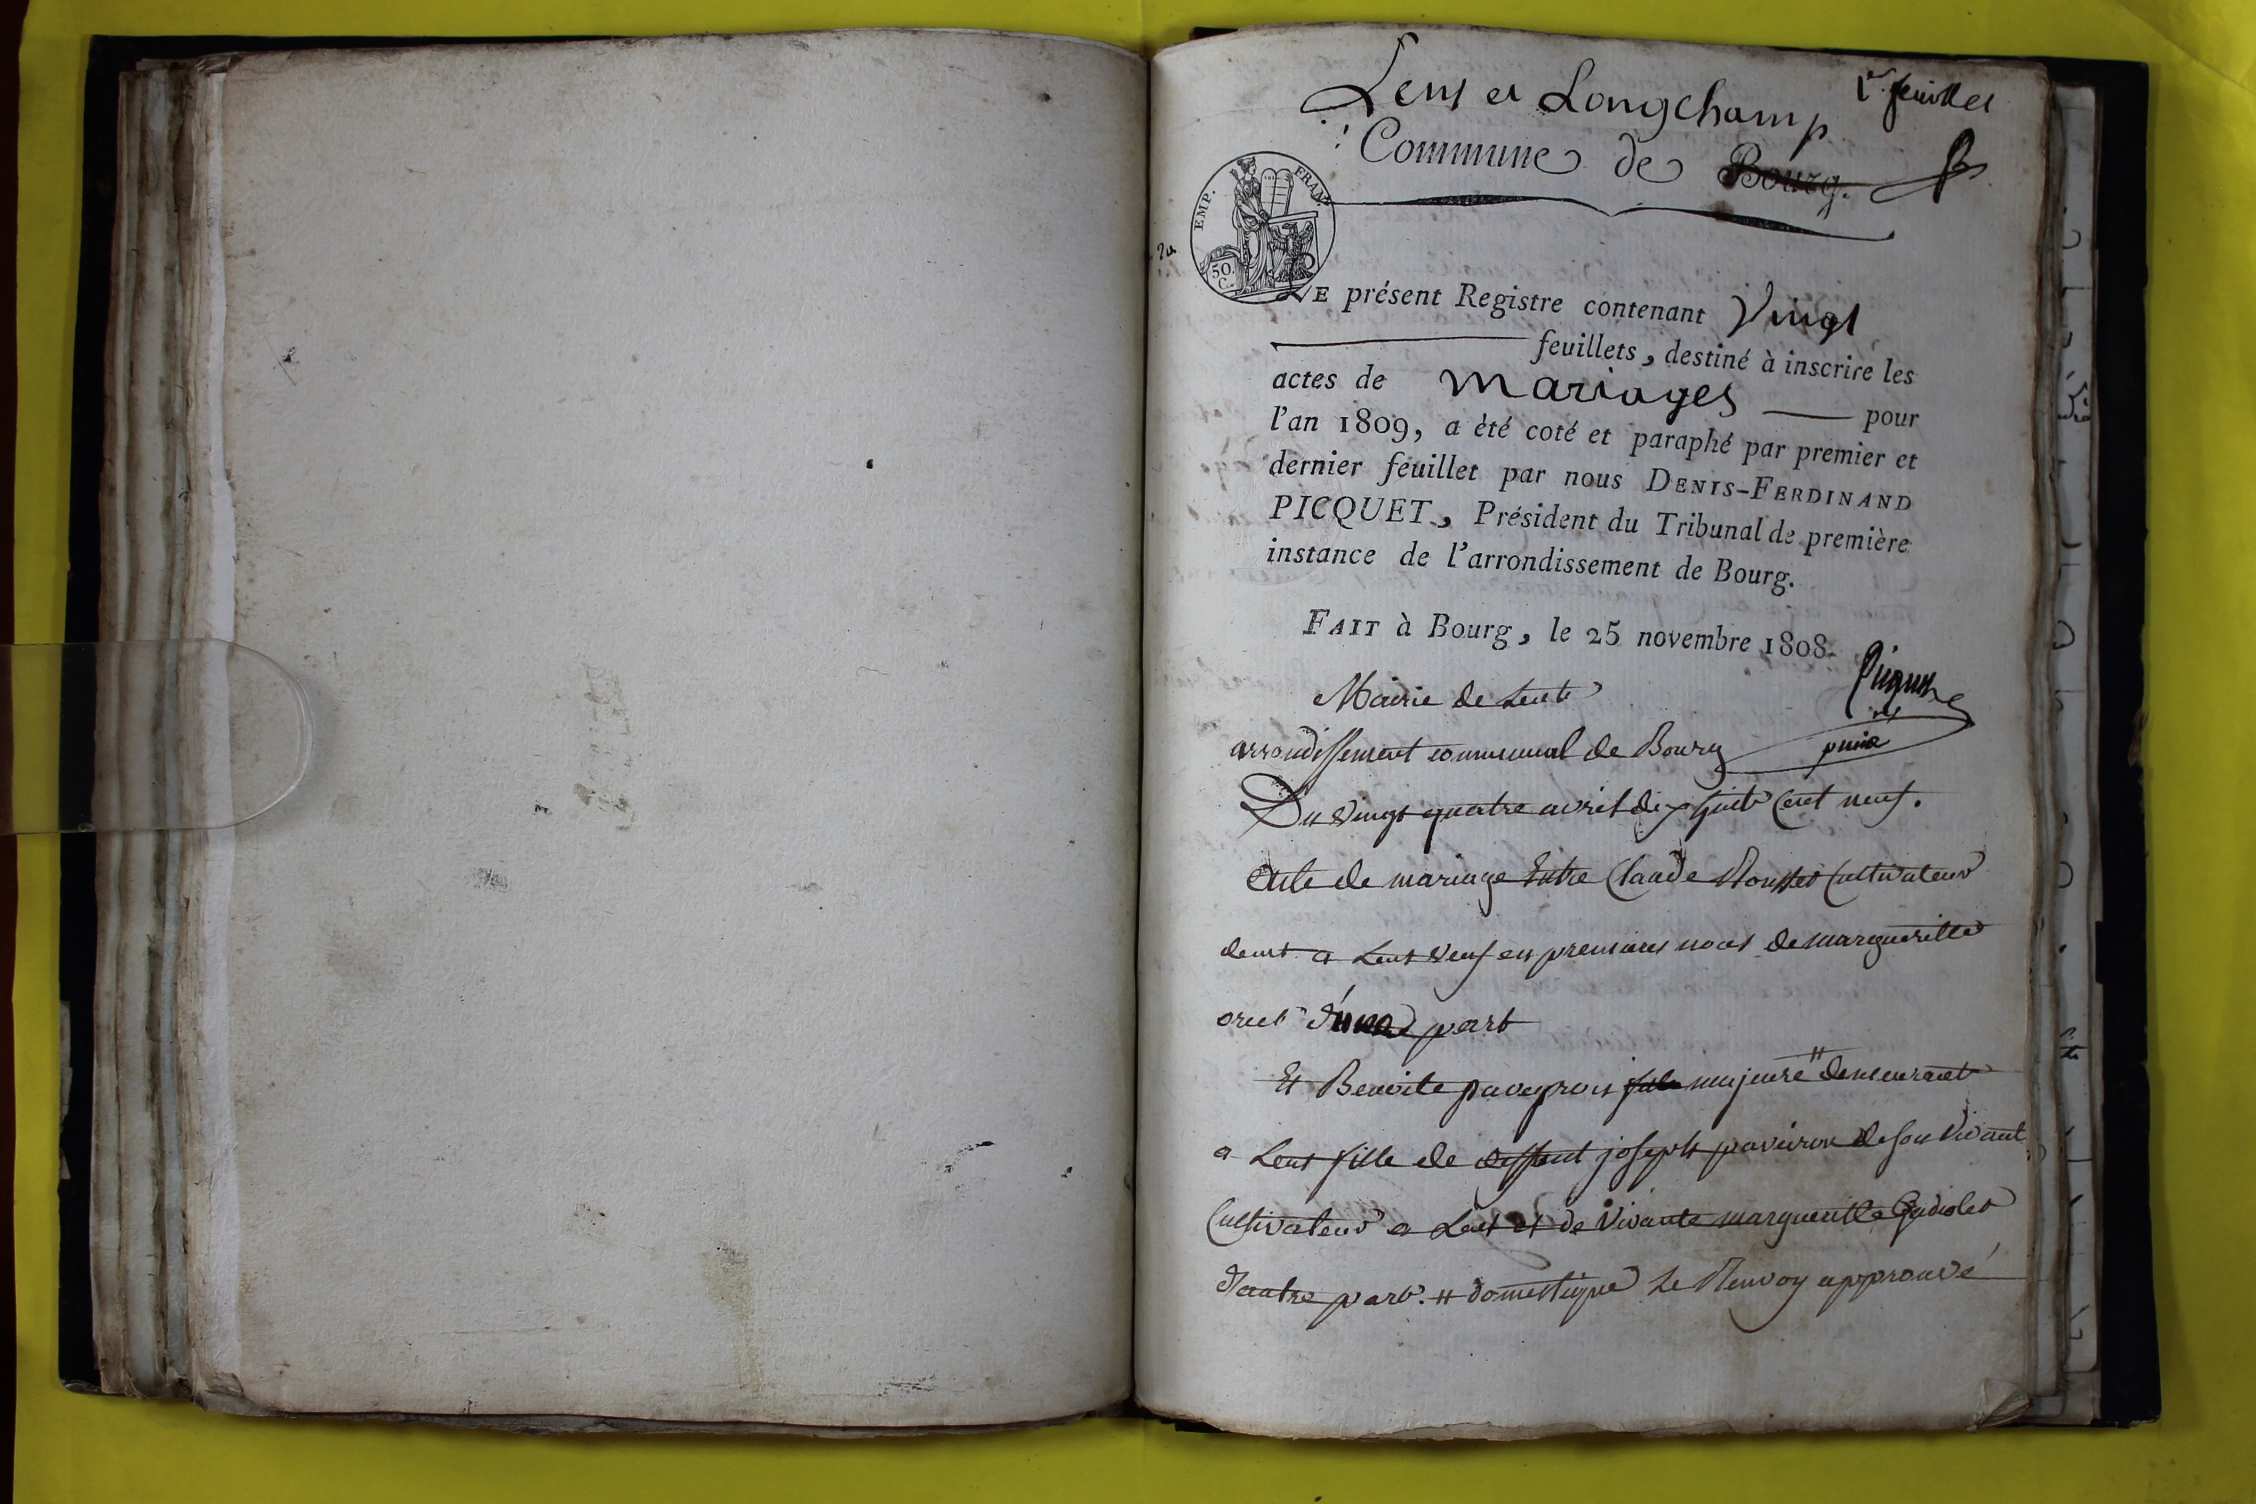 1er feuillet
Lent et Longchamp
Commune de Bourg.
EMP. FRAN.
50. C.
LE présent Registre contenant Vingt
feuillets, destiné à inscrire les
actes de Mariages pour
l'an 1809, a été coté et paraphé par premier et
dernier feuillet par nous DENIS-FERDINAND
PICQUET, Président du Tribunal de première
instance de l'arrondissement de Bourg.
FAIT à Bourg, le 25 novembre 1808.
Picquet
Mairie de Lent
arrondissement communal de Bourg
Du vingt quatre avril dix huit cent neuf.
Acte de mariage Entre Claude Rousset Cultivateur
demt a Lent veuf en premieres noces de margueritte
d'une part
Et Benoite majeure " demeurant
a Lent fille de deffunt joseph de son vivant
Cultivateur a Lent et de vivante margueritte
d'autre part. " domestique Le Renvoy approuvé